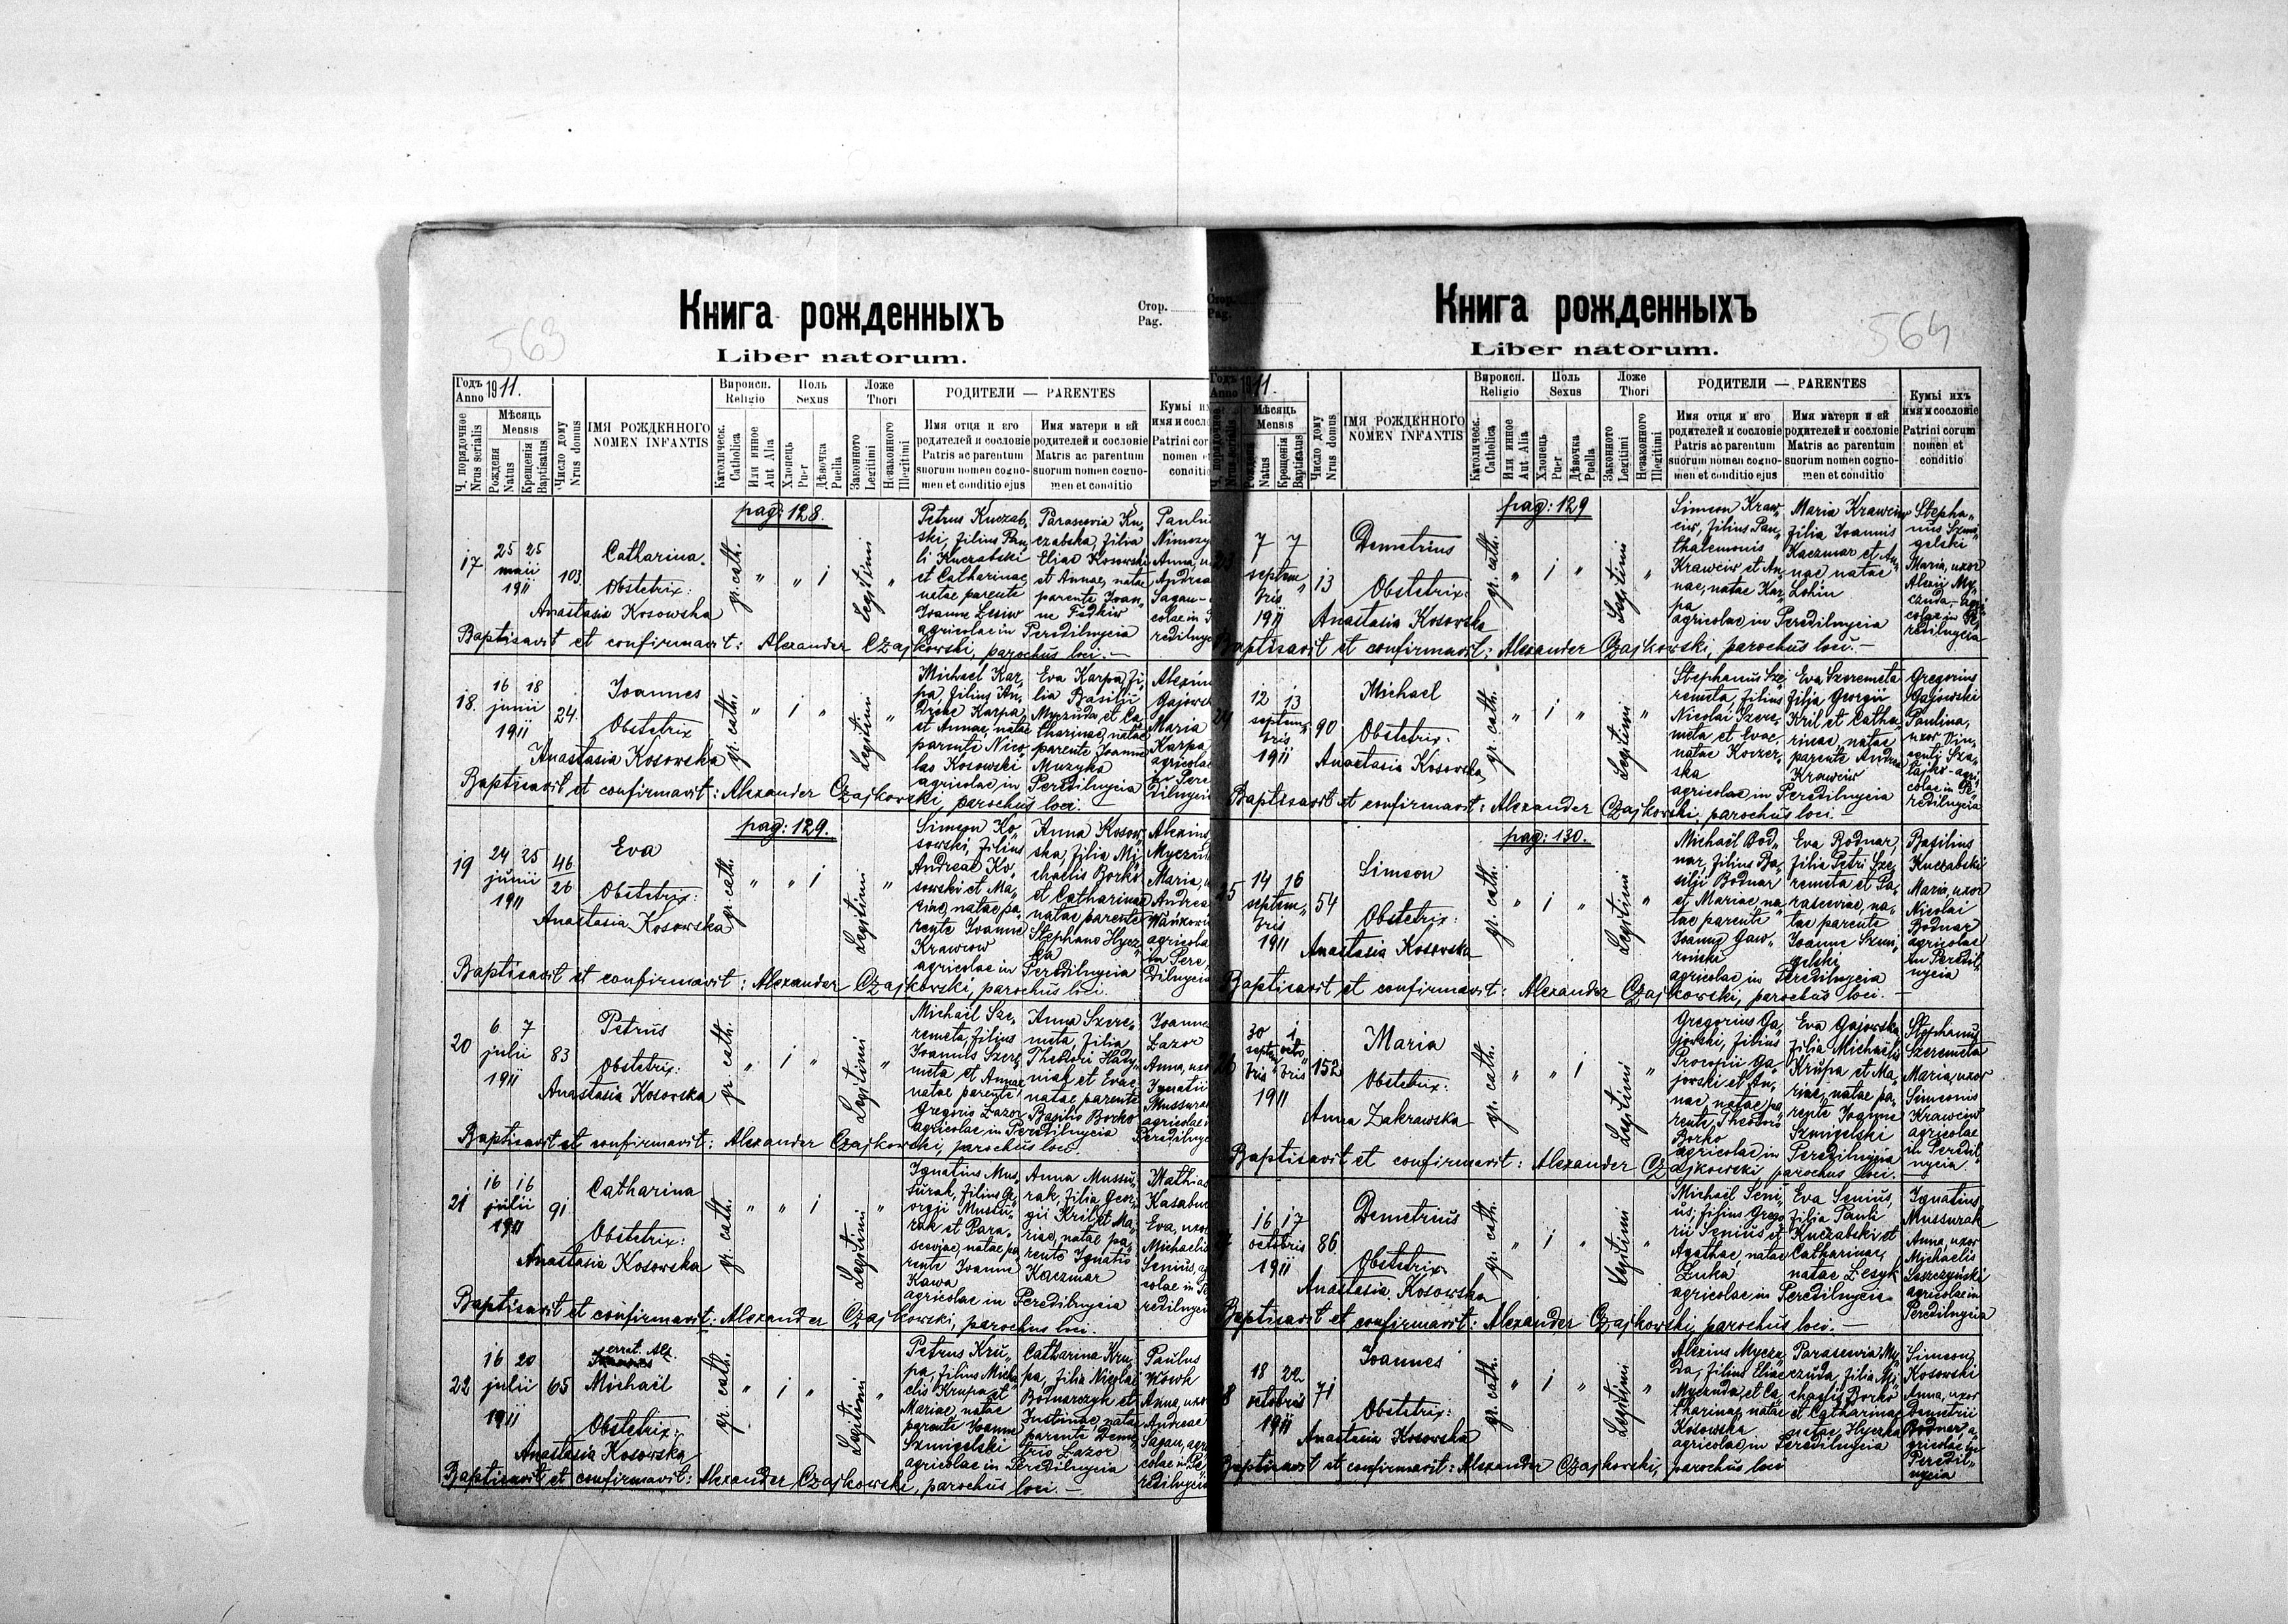 563
Книга рожденныхъ
Liber natorum.
Стор.
Pag.
Годъ 1911.
Anno
Ч. порядочное
Nrus serialis
Мѣсяць
Mensis
Рожденя
Natus
Крещенія
Baptisatus
Число дому
Nrus domus
ІМЯ РОЖДЕННОГО
NOMEN INFANTIS
Вироисп.
Religio
Католическ.
Catholica
Или инное
Aut Alia
Поль
Sexus
Хлопець
Puer
Дѣвочка
Puella
Ложе
Thori
Законного
Legitimi
Незаконного
Illegitimi
РОДИТЕЛИ — PARENTES
Имя отця и его
родителей и сословіе
Patris ac parentum
suorum nomen cogno-
men et conditio ejus
Имя матери и ей
родителей и сословіе
Matris ac parentum
suorum nomen cogno-
men et conditio
pag: 128.
17
25 25
maii
1911
103.
Catharina
Obstetrix:
Anastasia Kosowska
gr. cath.
" " 1
Legitimi
"
Petrus Kuczab,
ski, filius Pau,
li Kuczabski
et Catharinae,
natae parente
Joanne Lesiw
agricolae in Peredilnycia
Parascevia Ku,
czabska, filia
Eliae Kosowski
et Annae, natae
parente Joan,
ne Fedkiw
Baptisavit et confirmavit: Alexander Czajkowski, parochus loci. —
18.
16 18
junii
1911
24.
Joannes
Obstetrix
Anastasia Kosowska
gr. cath.
" 1 "
Legitimi
"
Michael Kar,
pa filius An,
dreae Karpa,
et Annae, natae
parente Nico,
lao Kosowski
agricolae in Peredilnycia
Eva Karpa, fi,
lia Basilii
Myczuda et Ca,
tharinae, natae
parente Joanne
Muzyka
Maria
Karpa
agricolae
Baptisavit et confirmavit: Alexander Czajkowski, parochus loci.
pag: 129.
19
24 25
junii
1911
46
26
Eva
Obstetrix:
Anastasia Kosowska
gr. cath.
" " 1
Legitimi
"
Simeon Ko,
sowski, filius
Andreae Ko,
sowski et Ma,
riae, natae pa,
rente Joanne
Krawciow
agricolae in Peredilnycia
Anna Kosow,
ska, filia Mi,
chaelis Borko
et Catharinae
natae parente
Stephano Hycz,
ka
Baptisavit et confirmavit: Alexander Czajkowski, parochus loci.
20
6 7
julii
1911
83
Petrus
Obstetrix:
Anastasia Kosowska
gr. cath.
" 1 "
Legitimi
"
Michaël Sze,
remeta, filius
Joannis Szere,
meta et Annae
natae parente
Gregorio Lazor
agricolae in Peredilnycia
Anna Szere,
meta, filia
Theodori Hady,
niak et Evae
natae parente
Basilio Borko
Baptisavit et confirmavit: Alexander Czajkowski, parochus loci.
21
16 16
julii
1911
91
Catharina
Obstetrix:
Anastasia Kosowska
gr. cath.
" " 1
Legitimi
"
Ignatius Mus,
surak, filius Ge,
orgii Mussu,
rak et Para,
sceviae, natae pa,
rente Joanne
Kawa
agricolae in Peredilnycia
Anna Mussu,
rak, filia Geor,
gii Kril et Ma,
riae, natae pa,
rente Ignatio
Kaczmar
Baptisavit et confirmavit: Alexander Czajkowski, parochus loci.
22
16 20
julii
1911
65
Michaël
Obstetrix:
Anastasia Kosowska
gr. cath.
" 1 "
Legitimi
"
Petrus Kru,
pa, filius Micha
elis Krupa et
Mariae, natae
parente Joanne
Szmigelski
agricolae in Peredilnycia
Catharina Kru,
pa, filia Nicolai
Bodnarczyk et
Justinae, natae
parente Deme,
trio Lazor
Baptisavit et confirmavit: Alexander Czajkowski, parochus loci. —
564
Книга рожденныхъ
Liber natorum.
1911.
Мѣсяць
Mensis
Natus
Крещенія
Baptisatus
Число дому
Nrus domus
ІМЯ РОЖДЕННОГО
NOMEN INFANTIS
Вироисп.
Religio
Католическ.
Catholica
Или инное
Aut Alia
Поль
Sexus
Хлопець
Puer
Дѣвочка
Puella
Ложе
Thori
Законного
Legitimi
Незаконного
Illegitimi
РОДИТЕЛИ — PARENTES
Имя отця и его
родителей и сословіе
Patris ac parentum
suorum nomen cogno-
men et conditio ejus
Имя матери и ей
родителей и сословіе
Matris ac parentum
suorum nomen cogno-
men et conditio
Кумы ихъ
имя и сословіе
Patrini corum
nomen et
conditio
pag: 129
7 7
septem,
bris
1911
13
Demetrius
Obstetrix:
Anastasia Kosowska
gr. cath.
" 1 "
Legitimi
"
Simeon Kraw,
ciw, filius Pan,
thalemonis
Krawciw et An,
nae, natae Kar,
pa
agricolae in Peredilnycia
Maria Krawciw
filia Joannis
Kaczmar et An,
nae natae
Lohin
Stepha,
nus Szmi,
gelski
Maria, uxor
Alexii My,
czuda, agri,
colae in Pe,
redilnycia
Baptisavit et confirmavit: Alexander Czajkowski, parochus loci. —
12 13
septem,
bris
1911
90
Michael
Obstetrix:
Anastasia Kosowska
gr. cath.
" 1 "
Legitimi
"
Stephanus Sze,
remeta, filius
Nicolai Szere,
meta et Evae,
natae Koczer,
ska
agricolae in Peredilnycia
Eva Szeremeta
filia Georgii
Kril et Catha,
rinae natae
parente Andrea
Krawciw
Gregorius
Gajowski
Paulina,
uxor Vin,
agri,
colae in Pe,
redilnycia
Baptisavit et confirmavit: Alexander Czajkowski, parochus loci. —
pag: 130.
14 16
septem,
bris
1911
54
Simeon
Obstetrix:
Anastasia Kosowska
gr. cath.
" 1 "
Legitimi
"
Michaël Bod,
nar, filius Ba,
silii Bodnar
et Mariae na,
tae parente
Joanne Gaw,
roński
agricolae in Peredilnycia
Eva Bodnar,
filia Petri Sze,
remeta et Pa,
rasceviae, na,
tae parente
Joanne Szmi,
gelski
Basilius
Kuczabski
Maria, uxor
Nicolai
Bodnar
agricolae
in Peredil,
nycia
Baptisavit et confirmavit: Alexander Czajkowski, parochus loci. —
30 1
sept. octo
bris bris
1911
152
Maria
Obstetrix:
Anna Zakrawska
gr. cath.
" " 1
Legitimi
"
Gregorius Ga,
jowski, filius
Procopii Ga,
jowski et An,
nae, natae pa,
rente Theodoro
Borko
agricolae in Peredilnycia
Eva Gajowska
filia Michaëlis
Krupa et Ma,
riae, natae pa,
rente Joanne
Szmigelski
Stephanus
Szeremeta
Maria, uxor
Simeonis
Krawciw
agricolae
in Peredil,
nycia
Baptisavit et confirmavit: Alexander Czajkowski parochus loci.
16 17
octobris
1911
86
Demetrius
Obstetrix
Anastasia Kosowska
gr. cath.
" 1 "
Legitimi
Michaël Seni,
us, filius Grego
rii Senius et
Agathae, natae
Żuka
agricolae in Peredilnycia
Eva Senius,
filia Pauli
Kuczabski et
Catharinae,
natae Lesyk
Ignatius
Mussurak
Anna, uxor
Michaelis
Leszczyński
agricolae in
Peredilnycia
Baptisavit et confirmavit: Alexander Czajkowski, parochus loci. —
18 22
octobris
1911
71
Joannes
Obstetrix:
Anastasia Kosowska
gr. cath.
" 1 "
Legitimi
"
Alexius Myczu,
da, filius Eliae
Myczuda, et Ca,
tharinae, natae
Kosowska
agricolae in Peredilnycia
Parascevia My,
czuda, filia Mi,
chaelis Borko
et Catharinae
natae Hyczka
Simeon
Kosowski
Anna, uxor
Demetrii
Bodnar, a,
gricolae in
Peredil,
nycia
Baptisavit et confirmavit: Alexander Czajkowski, parochus loci